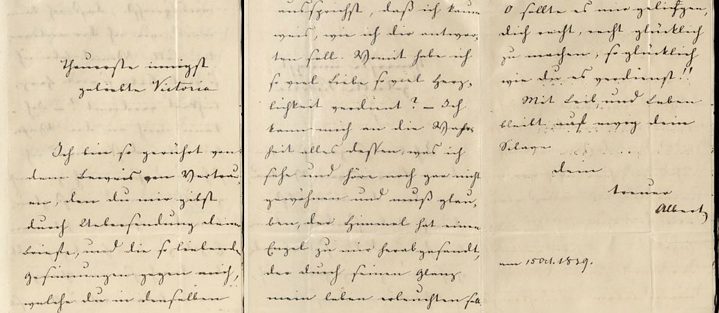 Theuerste innigst
geliebte Victoria
Ich bin so gerührt von
dem Beweis von Vertrau-
en, den du mir gibst
durch Uebersendung deiner
Briefe, und die so liebenden
Gesinnungen gegen mich,
welche du in denselben
aussprichst, daß ich kaum
weis, wie ich dir antwor-
ten soll. Womit habe ich
so viel Liebe so viel Herz-
lichkeit verdient? – Ich
kann mich an die Wahr-
heit alles dessen, was ich
sehe und höre noch gar nicht
gewöhnen und muß glau-
ben, der Himmel hat einen
Engel zu mir herabgesendet,
der durch seinen Glanz
mein Leben erleuchten soll.
O sollte es mir gelingen,
dich recht, recht glücklich
zu machen, so glücklich
wie du es verdienst!!
Mit Leib und Leben
bleibt auf ewig dein
Sclave
dein
treuer
Albert
am 15 Oct. 1839.